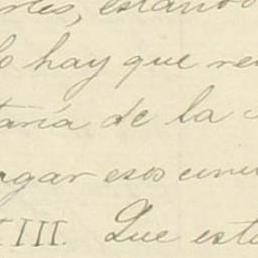 estando
lo hay que re
taria de la S
agar esos cinc
XIII. Que esta